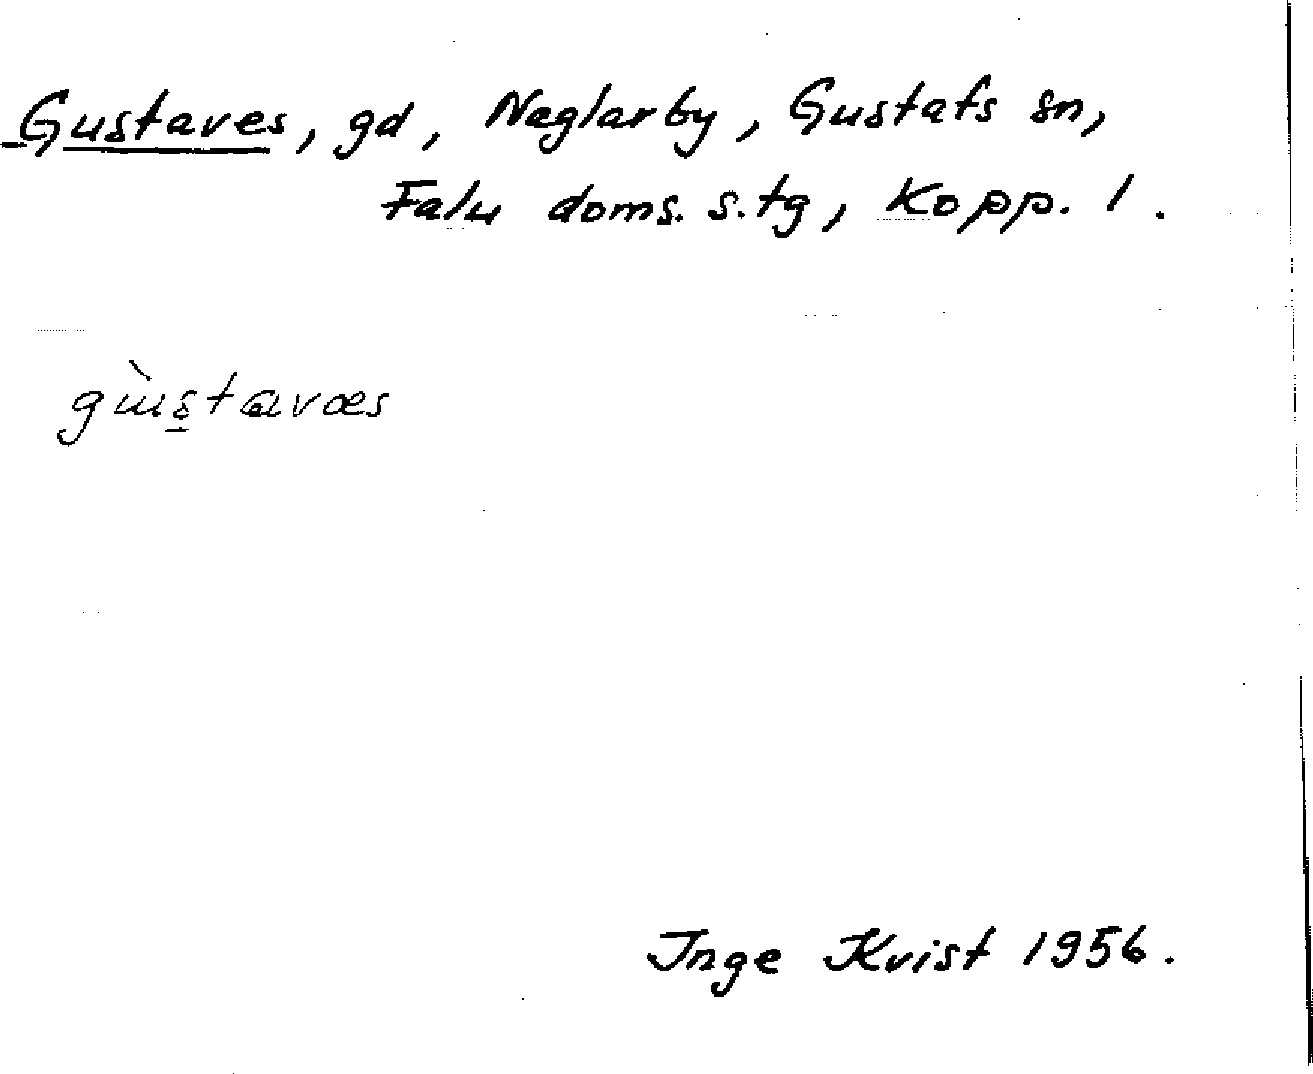 Gustaves, gd, Naglarby, Gustafs sn,
Falu doms. s.tg, Kopp. l.
gùstavæs
Inge Kvist 1956.